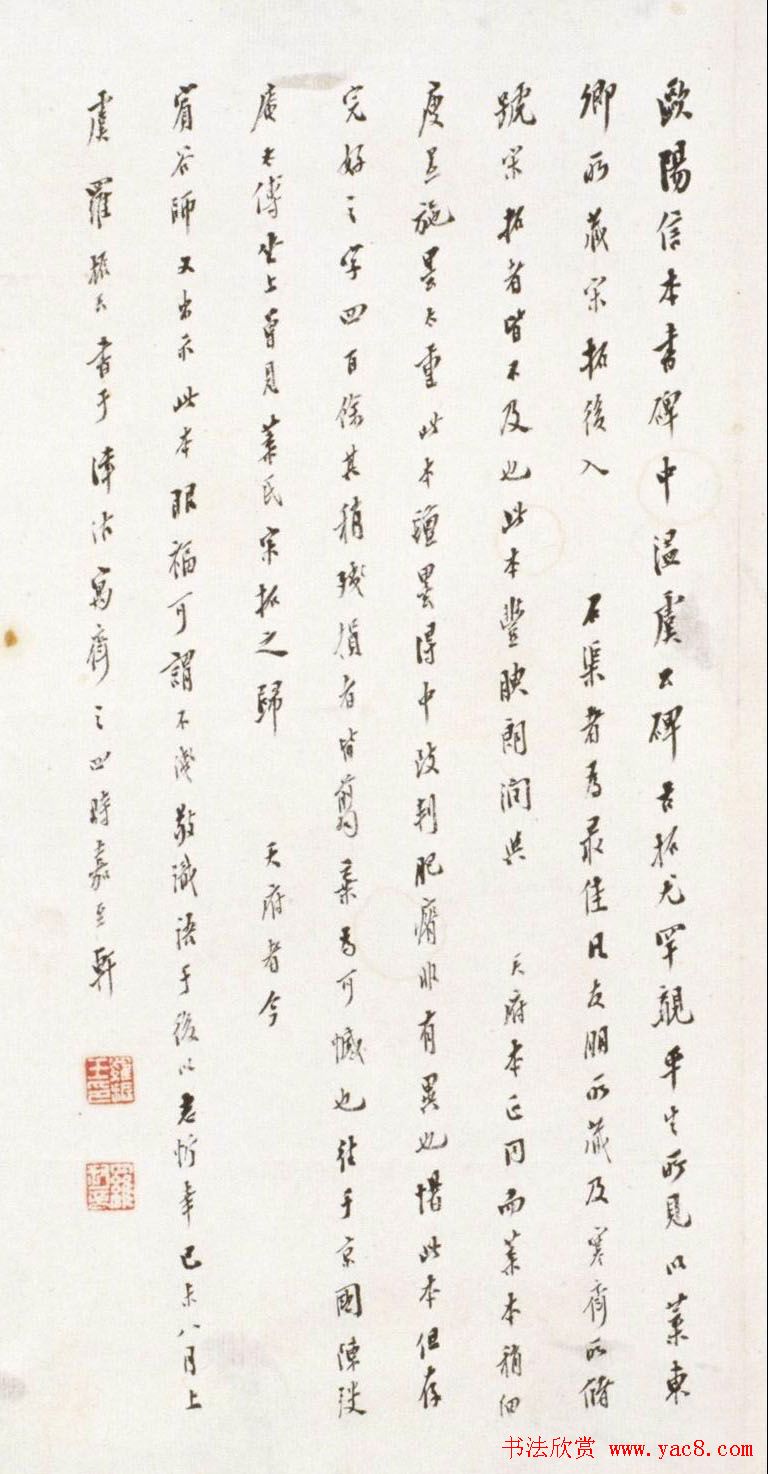 歐陽信本書碑中溫虞公碑古拓尤罕覯平生所見以葉東
卿所藏宋拓後入 石渠者為最佳凡友朋所藏及寒齋所儲
號宋拓者皆不及也此本豐腴朗潤與 天府本正同而葉本稍細
度是施墨太重此本檀墨得中致判肥瘠非有異也惜此本但存
完好之字四百餘其稍殘損者皆翦棄為可憾也往于京國陳弢
庵太傅坐上曾見葉氏宋拓之歸 天府者今
宥谷師又出示此本眼福可謂不淺敬識語于後以志忻幸己未八月上
虞羅振玉書于津沽寓齋之四時嘉至軒
羅振玉印
書法欣赏 www.yac8.com